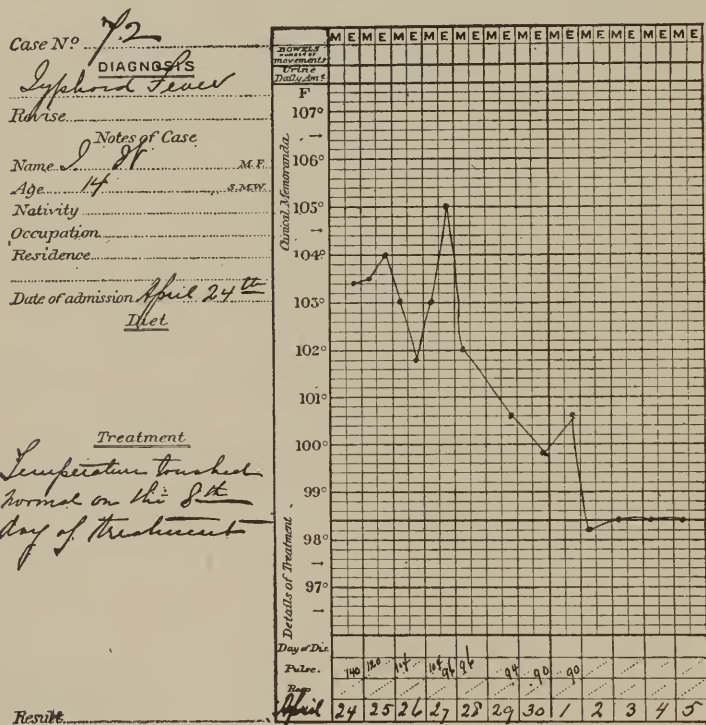 Case No. 72
DIAGNOSIS
Typhoid Fever
Revise
Notes of Case
Name J. W. M.F.
Age 14 S.M.W.
Nativity
Occupation
Residence
Date of admission April 24th
Diet
Treatment
Temperature touched
normal on the 8th
day of treatment
Result
M E M E M E M E M E M E M E M E M E M E M E M E
BOWELS
number of
movements
Urine
Daily Amt.
Clinical Memoranda
Details of Treatment
F
107°
106°
105°
104°
103°
102°
101°
100°
99°
98°
97°
Day of Dis.
Pulse. 140 120 104 104 96 96 94 90 90
Resp
April 24 25 26 27 28 29 30 1 2 3 4 5